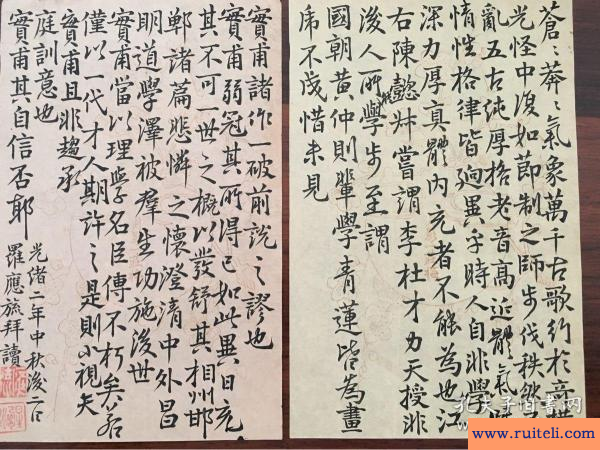 蒼〻莽〻氣象萬千古歌約於
光怪中復如節制之師步伐秩然
亂五古純厚格老音高近體氣
情性格律皆迥異乎時人自非學
深力厚真體內充者不能為也江
右陳懿叔嘗謂李杜才力天授非
後人所能學步至謂
國朝黃仲則輩學青蓮皆為畫
虎不成惜未見
實甫諸作一破前說之謬也
實甫弱冠其所得已如此異日充
其不可一世之概以發舒其相州邯
鄲諸篇悲憫之懷澄清中外昌
明道學澤被羣生功施後世
實甫當以理學名臣傳不朽矣若
僅以一代才人期許之是則小視矣
實甫且非趨承
庭訓意也
實甫其自信否耶
光緒二年中秋後二日
羅應旒拜讀
孔夫子旧书网
www.ruiteli.com